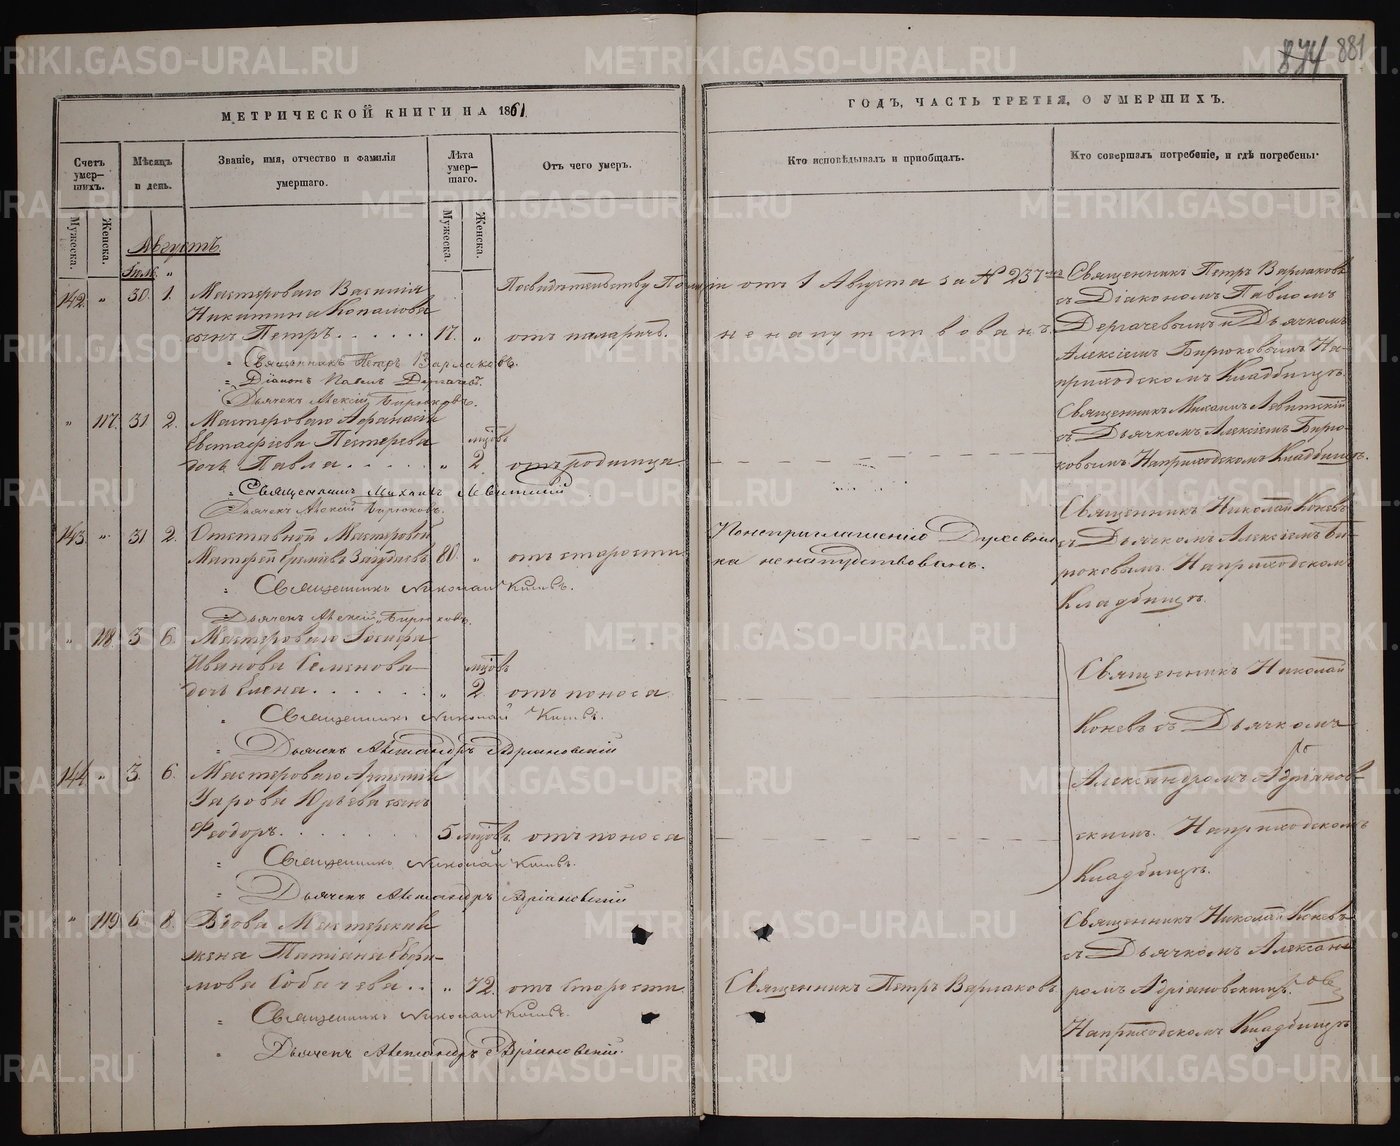 874 881
МЕТРИЧЕСКОЙ КНИГИ НА 1861
ГОДЪ, ЧАСТЬ ТРЕТІЯ, О УМЕРШИХЪ.
Счетъ умер-шихъ.
Мѣсяцъ и день.
Званіе, имя, отчество и фамилія умершаго.
Лѣта умер-шаго.
Отъ чего умеръ.
Кто исповѣдывалъ и пріобщалъ.
Кто совершалъ погребеніе, и гдѣ погребены.
Мужеска.
Женска.
Мужеска.
Женска.
Августъ
Іюль "
142. " 30. 1. Мастероваго Василія
Никитина Копалова
сынъ Петръ. . . . . . 17. " отъ паларичъ.
По свидѣтельству Поліціи отъ 1 Августа за № 237
не напутствованъ.
Священникъ Петръ Варлаковъ
съ Діакономъ Павломъ
Дергачевымъ и Дьячкомъ
Алексіемъ Бирюковымъ На-
приходскомъ Кладбищѣ.
Священникъ Петръ Варлаковъ.
Діаконъ Павелъ Дергачевъ.
Дьячекъ Алексій Бирюковъ.
" 117. 31 2. Мастероваго Афанасія
Евстафіева Пестерева
дочь Павла. . . . . " мцовъ 2 отъ родимца.
Священникъ Михаилъ Левитскій
съ Дьячкомъ Алексіемъ Бирю-
ковымъ На приходскомъ Кладбищѣ.
Священникъ Михаилъ Левитскій
Дьячекъ Алексій Бирюковъ.
143. " 31 2. Отставной Мастеровой
80. " отъ старости
По неприглашенію Духовни
ка не напутствованъ.
Священникъ Николай Коневъ
съ Дьячкомъ Алексіемъ Би-
рюковымъ. На приходскомъ
Кладбищѣ.
Священникъ Николай Коневъ.
Дьячекъ Алексій Бирюковъ.
" 118 3 6. Мастероваго Іосифа
Иванова Семенова
дочь Елена. . . . . . . " мцовъ 2 отъ поноса
Священникъ Николай Коневъ.
Дьячекъ Александръ Адріановскій
Священникъ Николай
Коневъ съ Дьячкомъ
Александромъ Адріанов-
скимъ. На приходскомъ
Кладбищѣ.
144 " 3. 6. Мастероваго Артемія
Уарова Юрьева сынъ
Феодоръ. . . . . . . . 5 мцовъ. отъ поноса
Священникъ Николай Коневъ.
Дьячекъ Александръ Адріановскій
" 119 6 8. Вдова Мастерская
жена Татіана Ефи-
мова Собачева. . " 72. отъ старости
Священникъ Петръ Варлаковъ
Священникъ Николай Коневъ
съ Дьячкомъ Александ-
ромъ Адріановскимъ.
На приходскомъ Кладбищѣ
Священникъ Николай Коневъ.
Дьячекъ Александръ Адріановскій.
METRIKI.GASO-URAL.RU